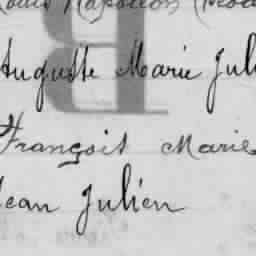 Louis Napoléon
Auguste Marie Jul
François Marie
Jean Julien